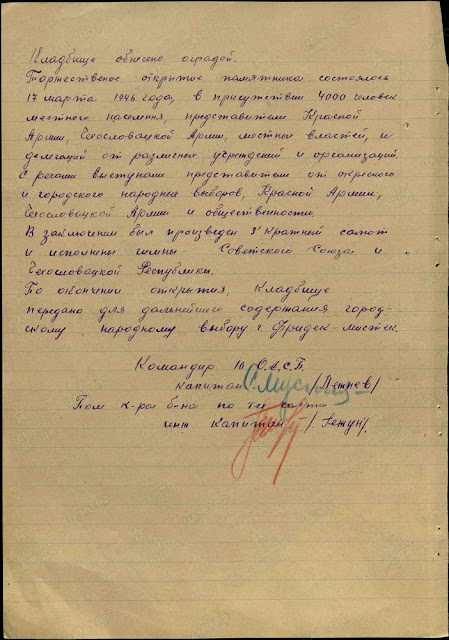 Кладбище обнесено оградой.
Торжественое открытие памятника состоялось
17 марта 1946 года, в присутствии 4000 человек
местного населения, представители Красной
Армии, Чехословацкой Армии, местных властей, и
делегаций от различных учреждений и организаций.
С речами выступали представители от окресного
и городского народных выборов, Красной Армии,
Чехословацкой Армии и общественности.
В заключении был произведен 3х кратный салют
и исполнены гимны Советского Союза и
Чехословацкой Республики.
По окончании открытия, Кладбище
передано для дальнейшего содержания город-
скому народному выбору г. Фридек-мистек.
Командир 16 О.Д.С.Б.
капитан /Летнев/
Пом к-ра б-на по тех части
инж капитан